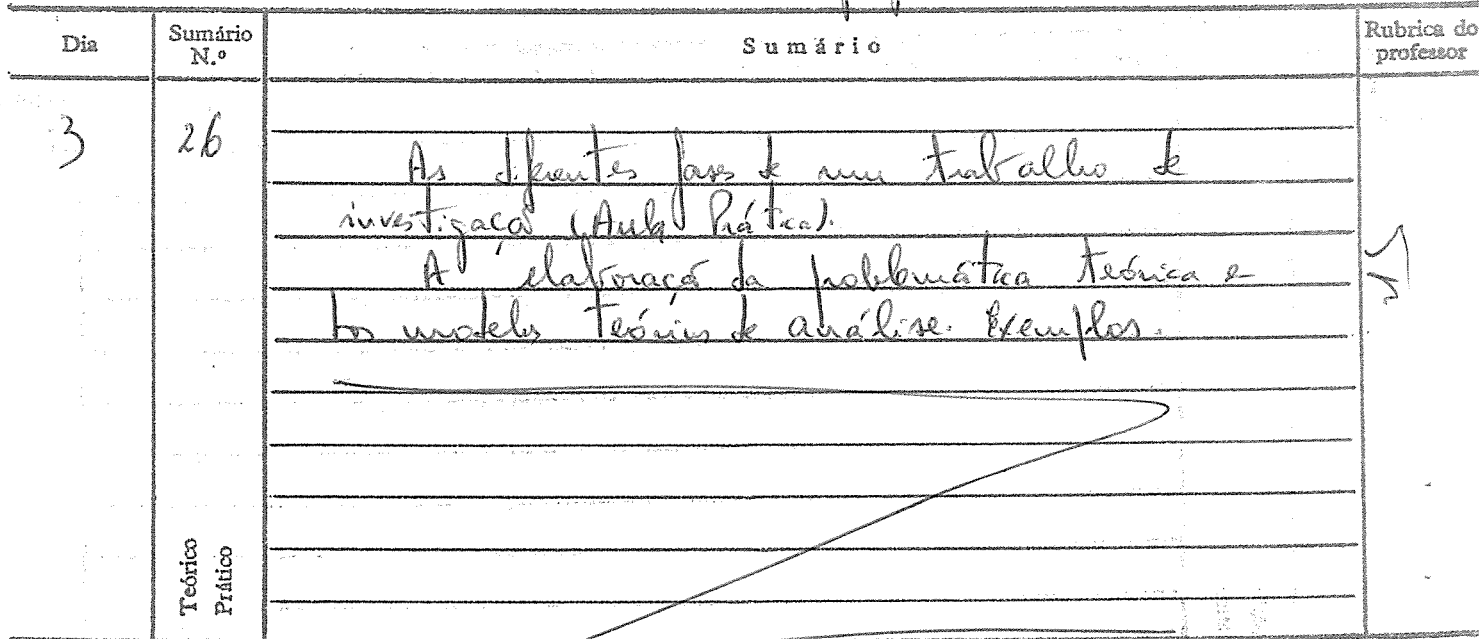 Dia
Sumário
N.º
Sumário
Rubrica do
professor
3
26
As diferentes fases de um trabalho de
investigação (Aula Prática).
A elaboração da problemática teórica e
dos modelos teóricos de análise. Exemplos.
Teórico
Prático